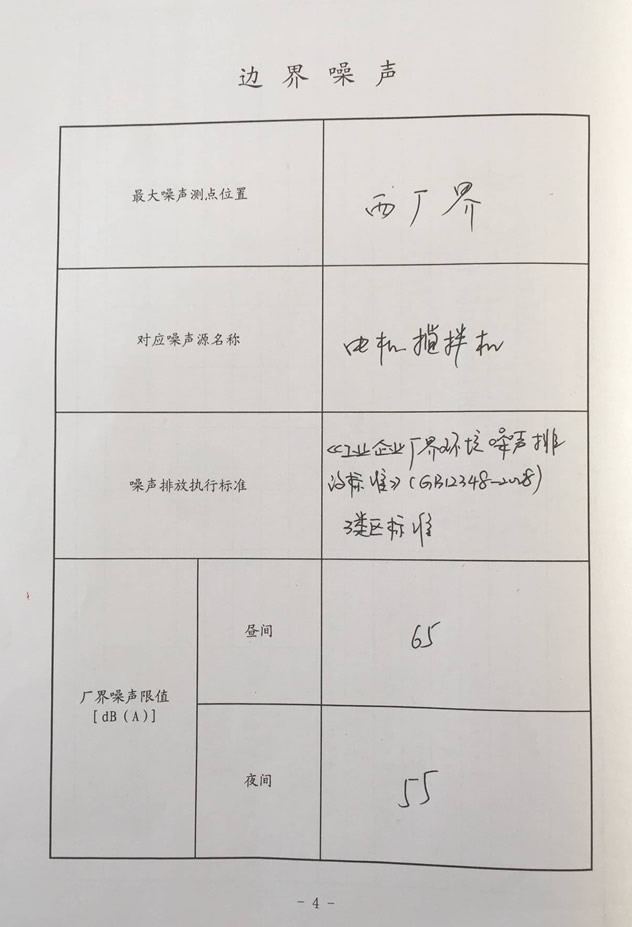 边界噪声
最大噪声测点位置
西厂界
对应噪声源名称
电机搅拌机
噪声排放执行标准
《工业企业厂界环境噪声排
放标准》(GB12348-2008)
3类区标准
厂界噪声限值
[dB(A)]
昼间
65
夜间
55
- 4 -